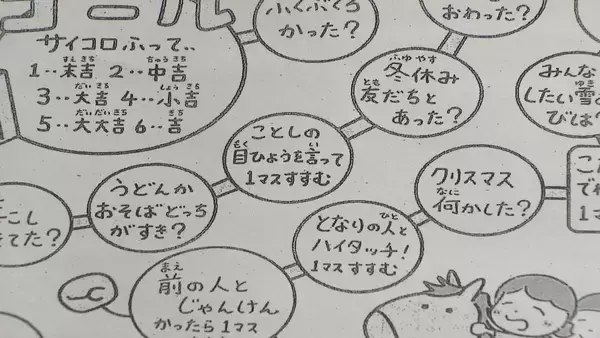 ゴール
サイコロふって、、
1‥末吉 2‥中吉
3‥大吉 4‥小吉
5‥大大吉 6‥吉
ふくぶくろ
かった？
おわった？
冬休み
友だちと
あった？
みんな
したい雪
びは？
ことしの
目ひょうを言って
1マスすすむ
うどんか
おそばどっち
がすき？
こし
てた？
クリスマス
何かした？
となりの人と
ハイタッチ！
1マスすすむ
前の人と
じゃんけん
かったら1マス